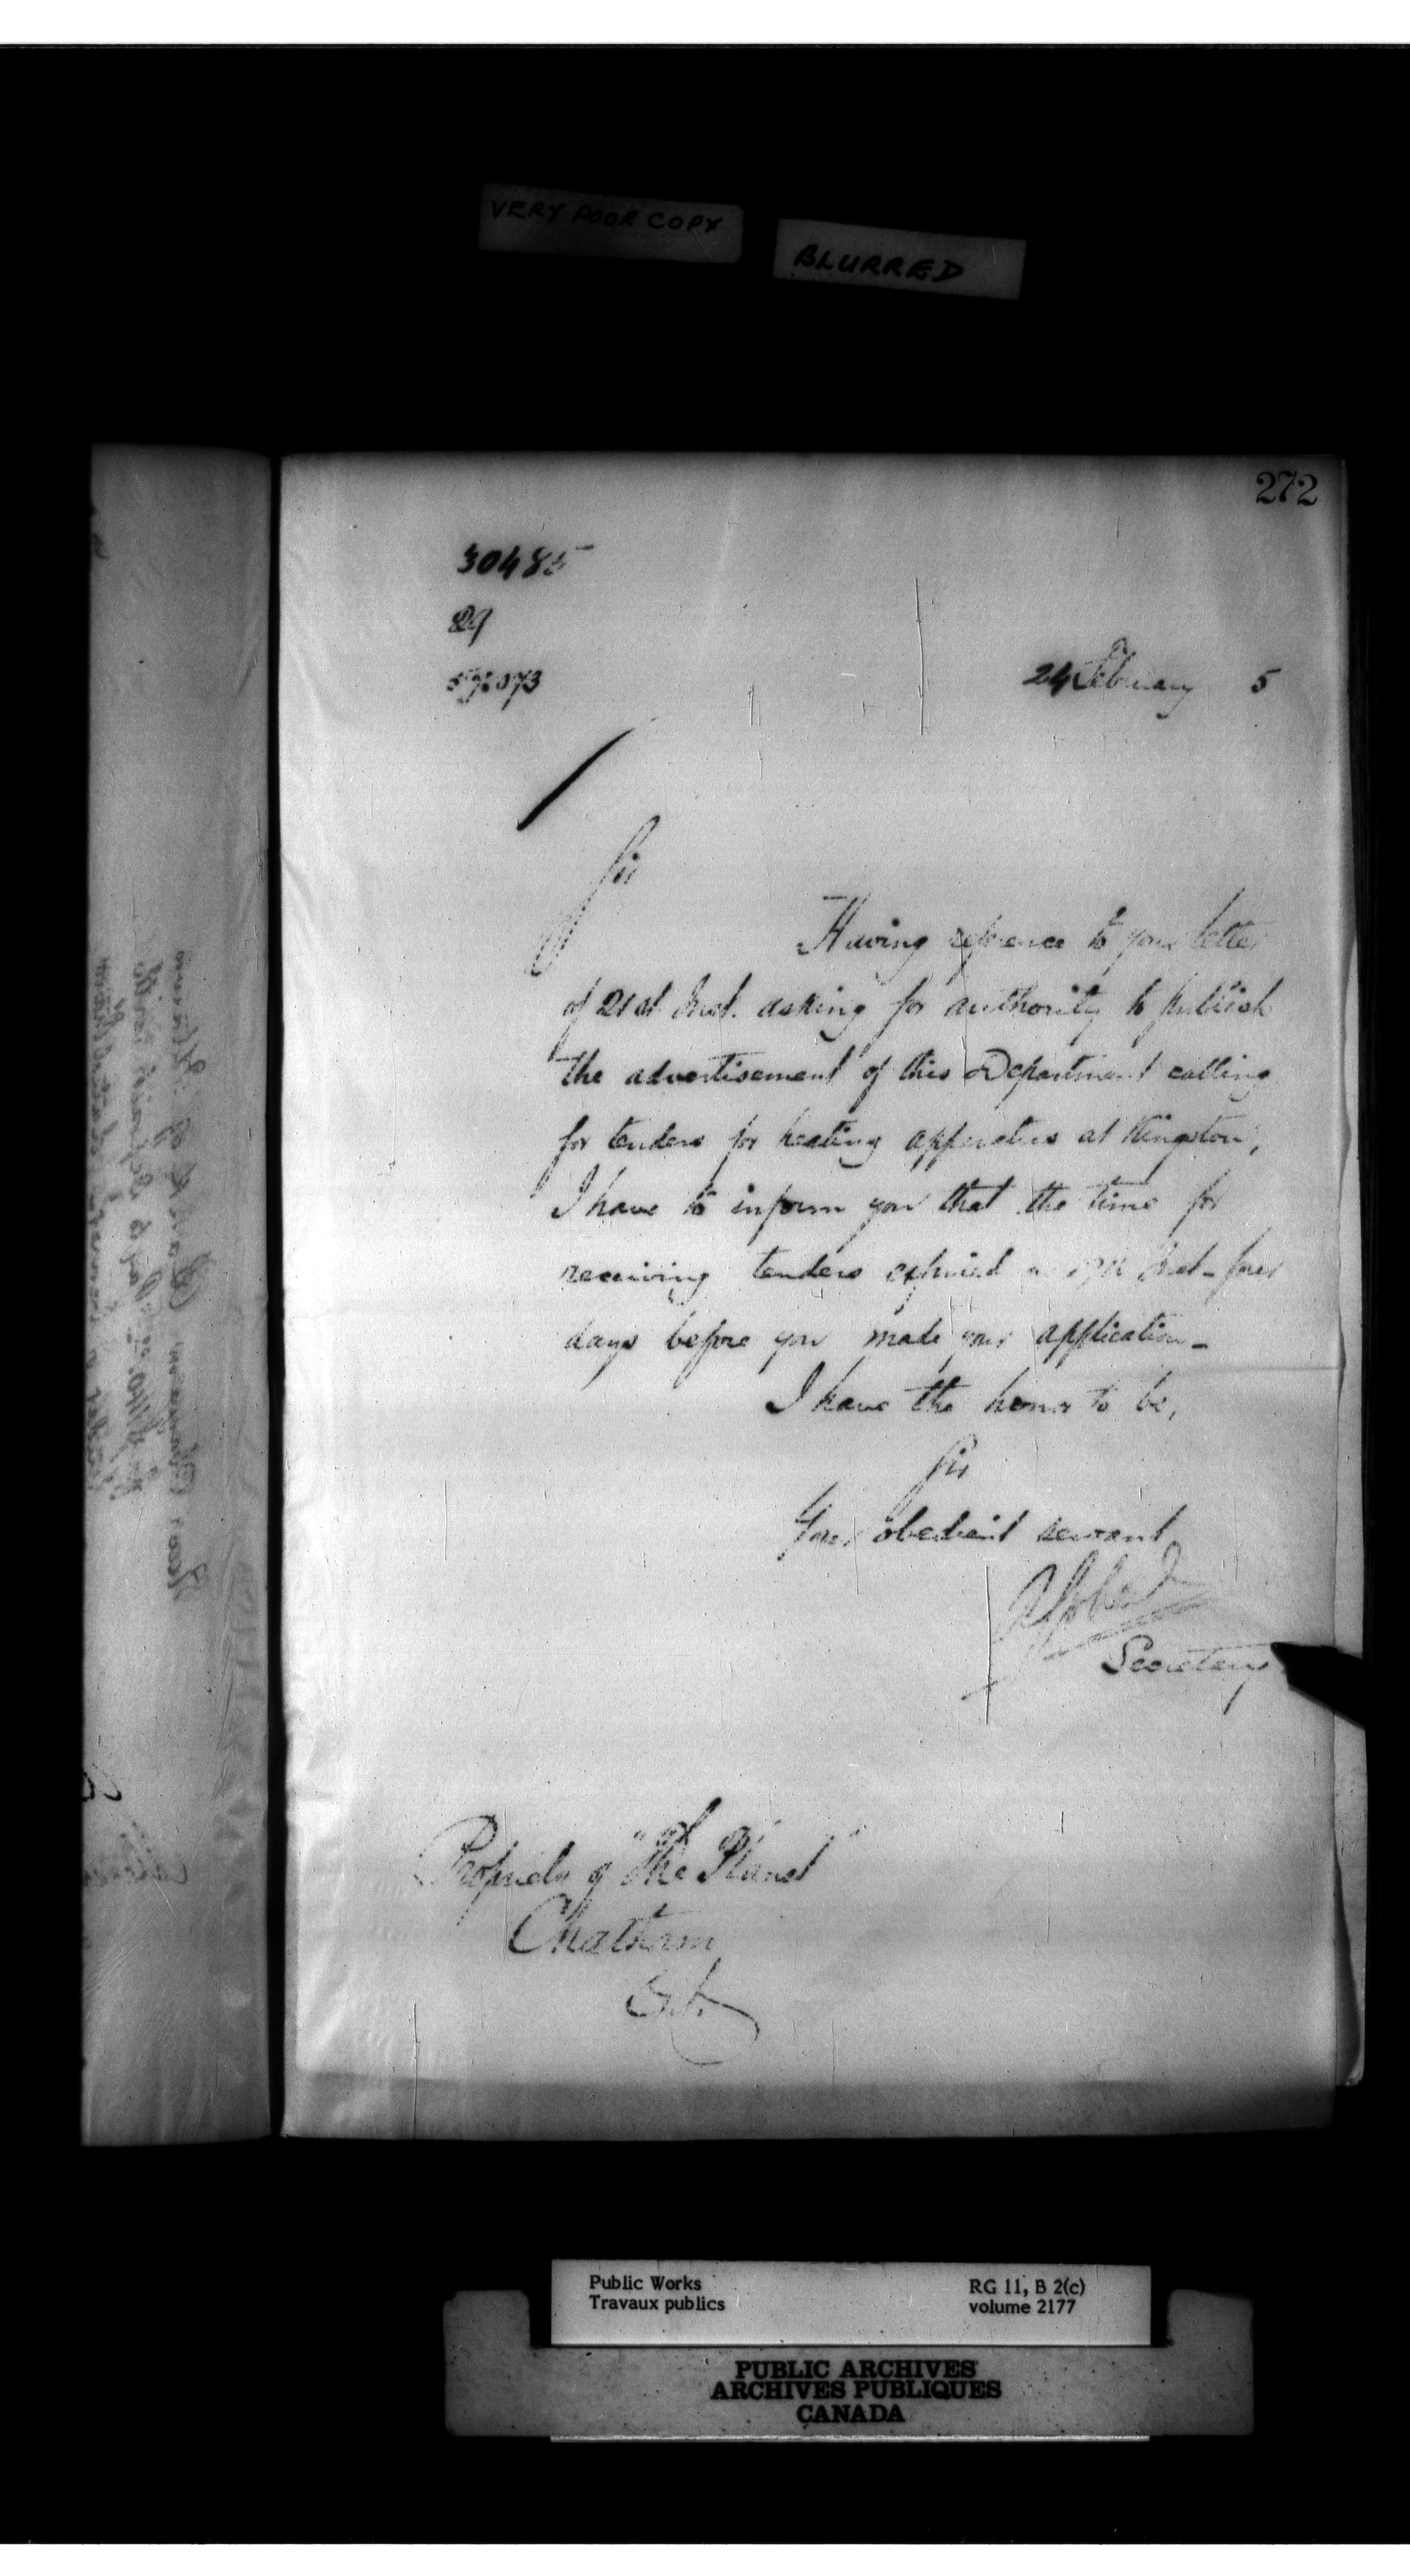 VERY POOR COPY
BLURRED
272
30485
29
24 February 5
Sir
Having reference to your letter
of 21st Inst. asking for authority to publish
the advertisement of this Department calling
for tenders for heating apparatus at Kingston,
I have to inform you that the time for
receiving tenders expired Inst - four
days before you made your application -
I have the honor to be,
Sir
Your obedient servant
Secretary
Proprietor of "The Planet"
Chatham
Ont.
Public Works
Travaux publics
RG 11, B 2(c)
volume 2177
PUBLIC ARCHIVES
ARCHIVES PUBLIQUES
CANADA